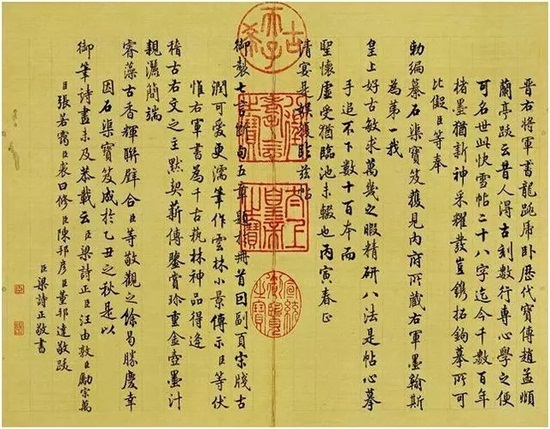 晉右將軍書龍跳虎臥歷代寶傳趙孟頫
蘭亭跋云昔人得古刻數行專心學之便
可名世此快雪帖二十八字迄今千數百年
楮墨猶新神采耀發豈鐫拓鉤摹所可
比儗臣等奉
勅編纂石渠寶笈獲見內府所藏右軍墨翰斯
為第一我
皇上好古敏求萬幾之暇精研八法是帖心摹
手追不下數十百本而
聖懷虛受猶臨池未輟也丙寅春正
清宴是娛復茲帖
御製七言斷句五章題冊首回副頁宋牋古
潤可愛更濡筆作雲林小景傳示臣等伏
惟右軍書為千古藝林神品得逢
稽古右文之主默契薪傳鑒賞珍重金壺墨汁
親灑簡端
睿藻古香輝聯璧合臣等敬觀之餘曷勝慶幸
因石渠寶笈成於乙丑之秋是以
御筆詩畫未及恭載云臣梁詩正臣汪由敦臣勵宗萬
臣張若靄臣裘曰修臣陳邦彥臣董邦達敬跋
臣梁詩正敬書
古希天子
八徵耄念之寶
太上皇帝之寶
宣統御覽之寶